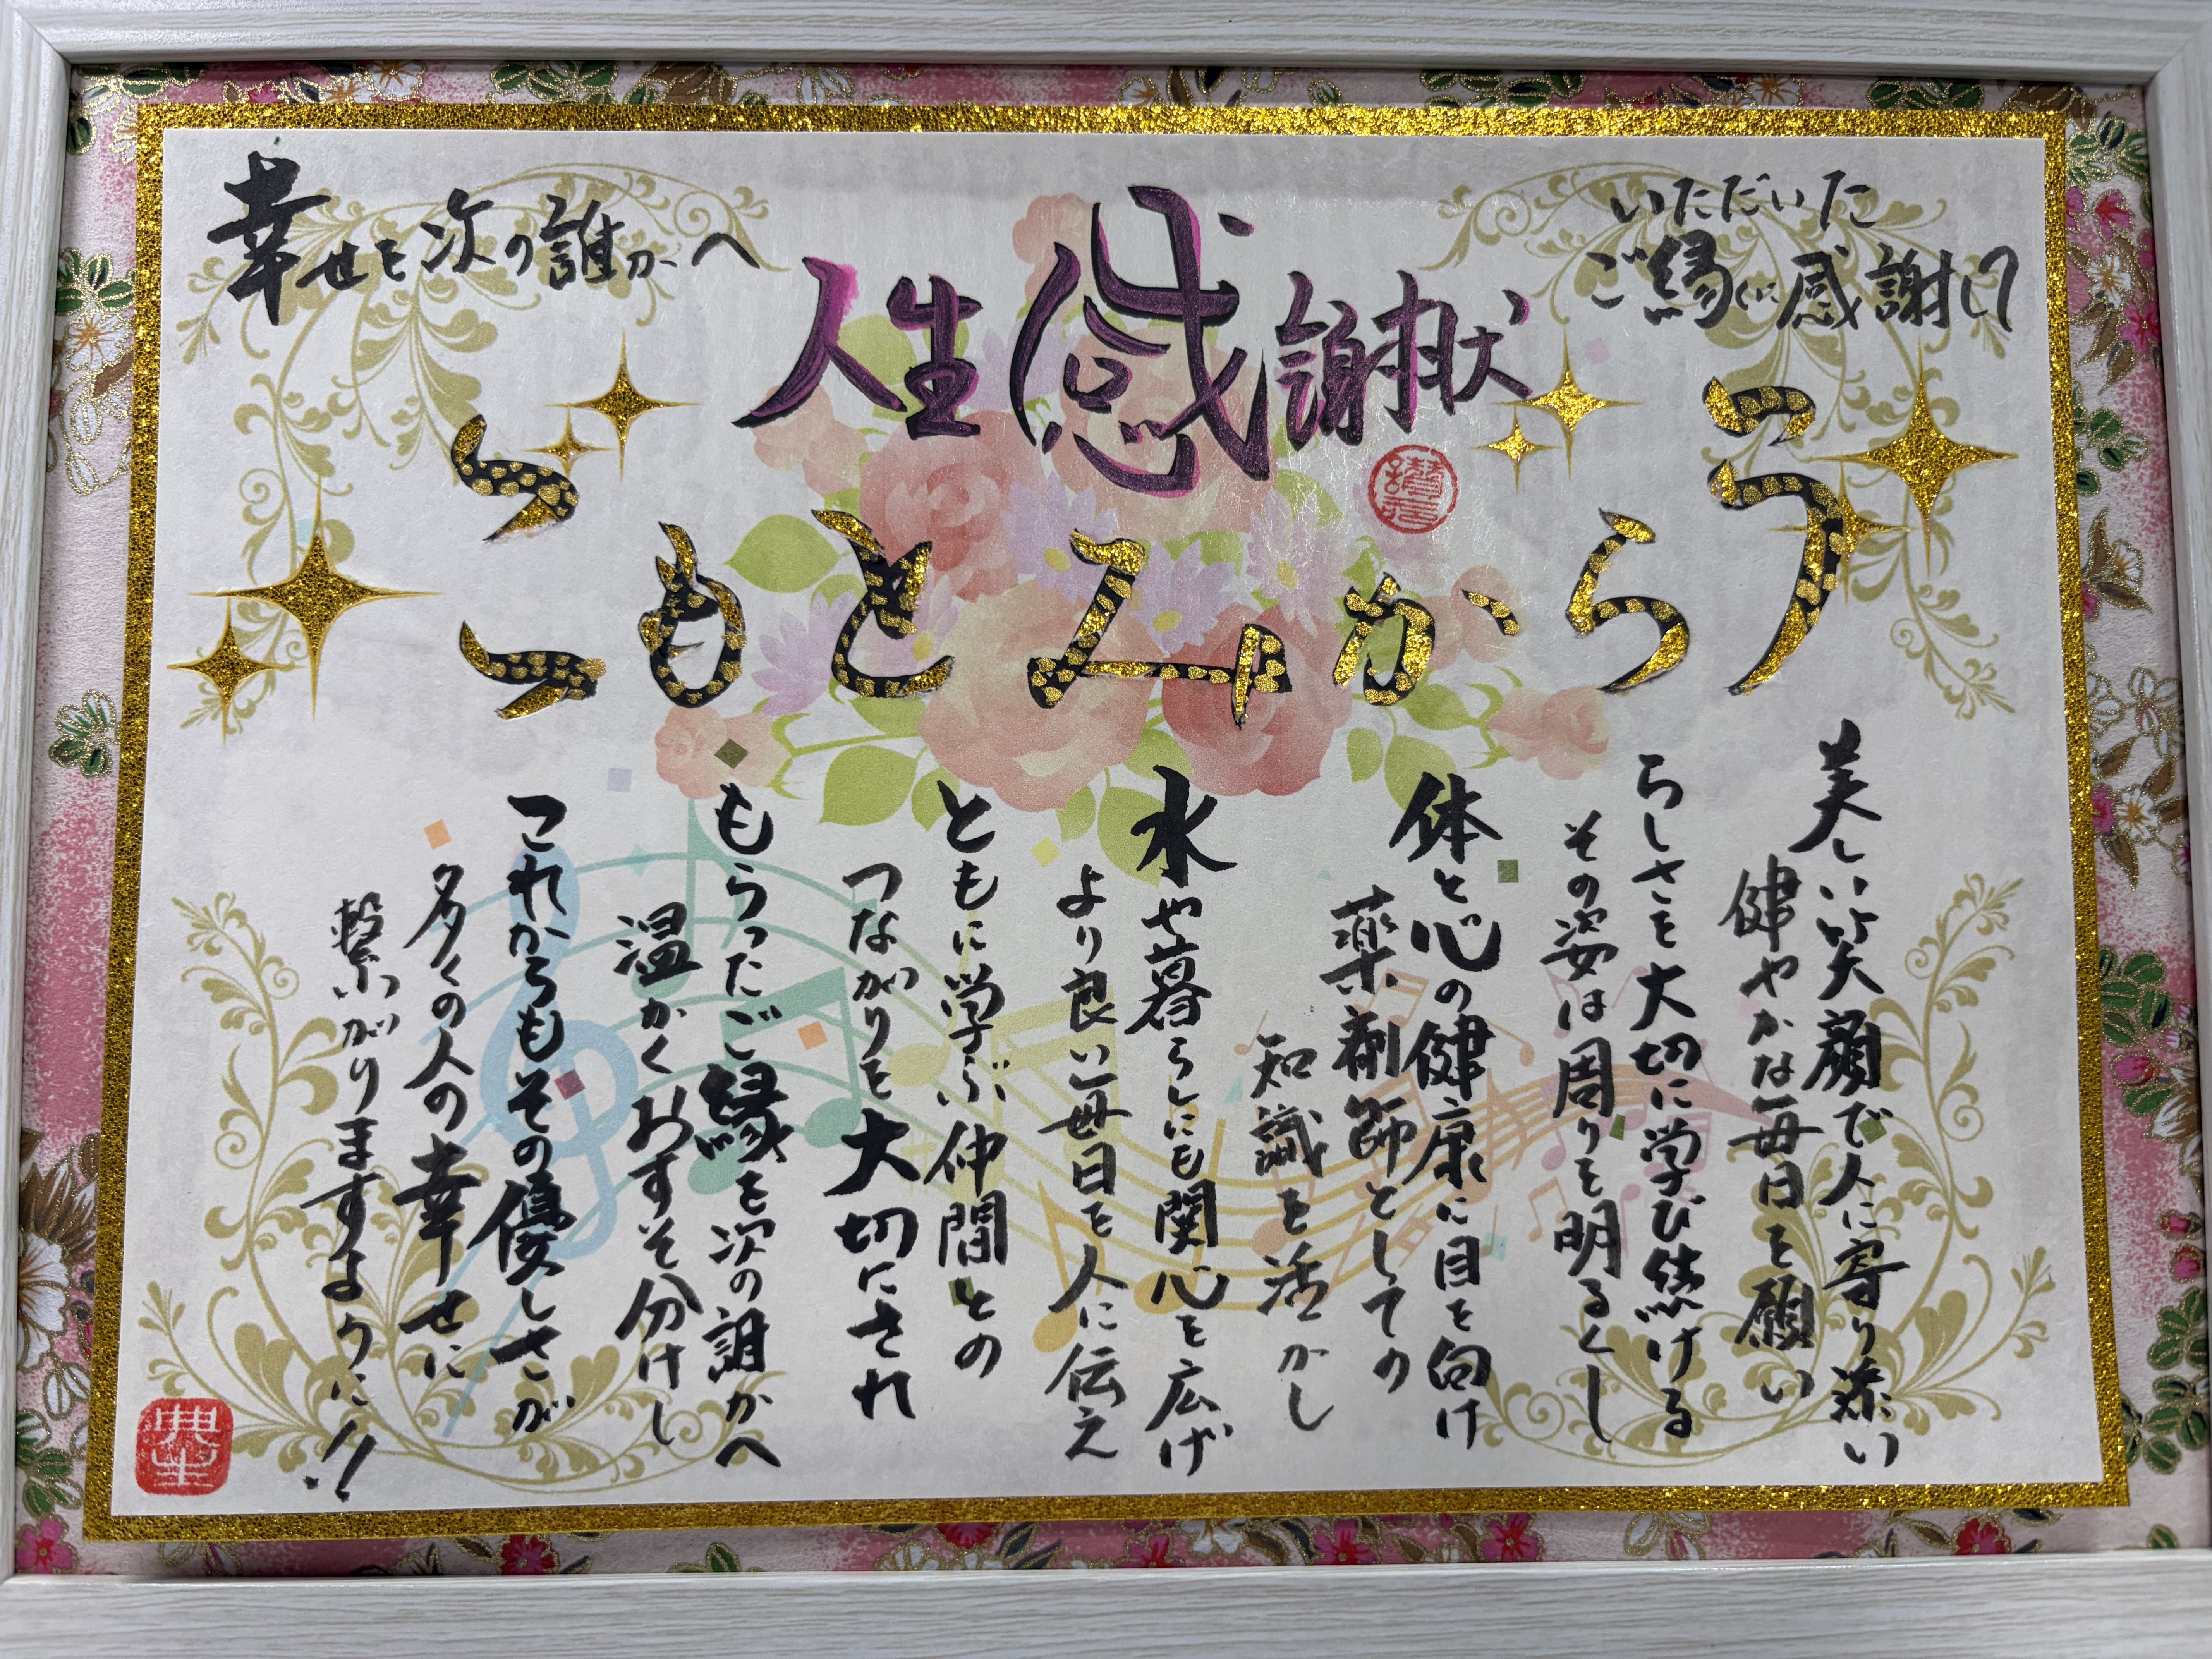 人生感謝状
いただいた
ご縁に感謝して
幸せを次の誰かへ
うらかみともこ
美しい笑顔で人に寄り添い
健やかな毎日を願い
らしさを大切に学び続ける
その姿は周りを明るくし
体と心の健康に目を向け
薬剤師としての
知識を活かし
水や暮らしにも関心を広げ
より良い毎日を人に伝え
ともに学ぶ仲間との
つながりを大切にされ
もらったご縁を次の誰かへ
温かくおすそ分けし
これからもその優しさが
多くの人の幸せに
繋がりますように!!
典生